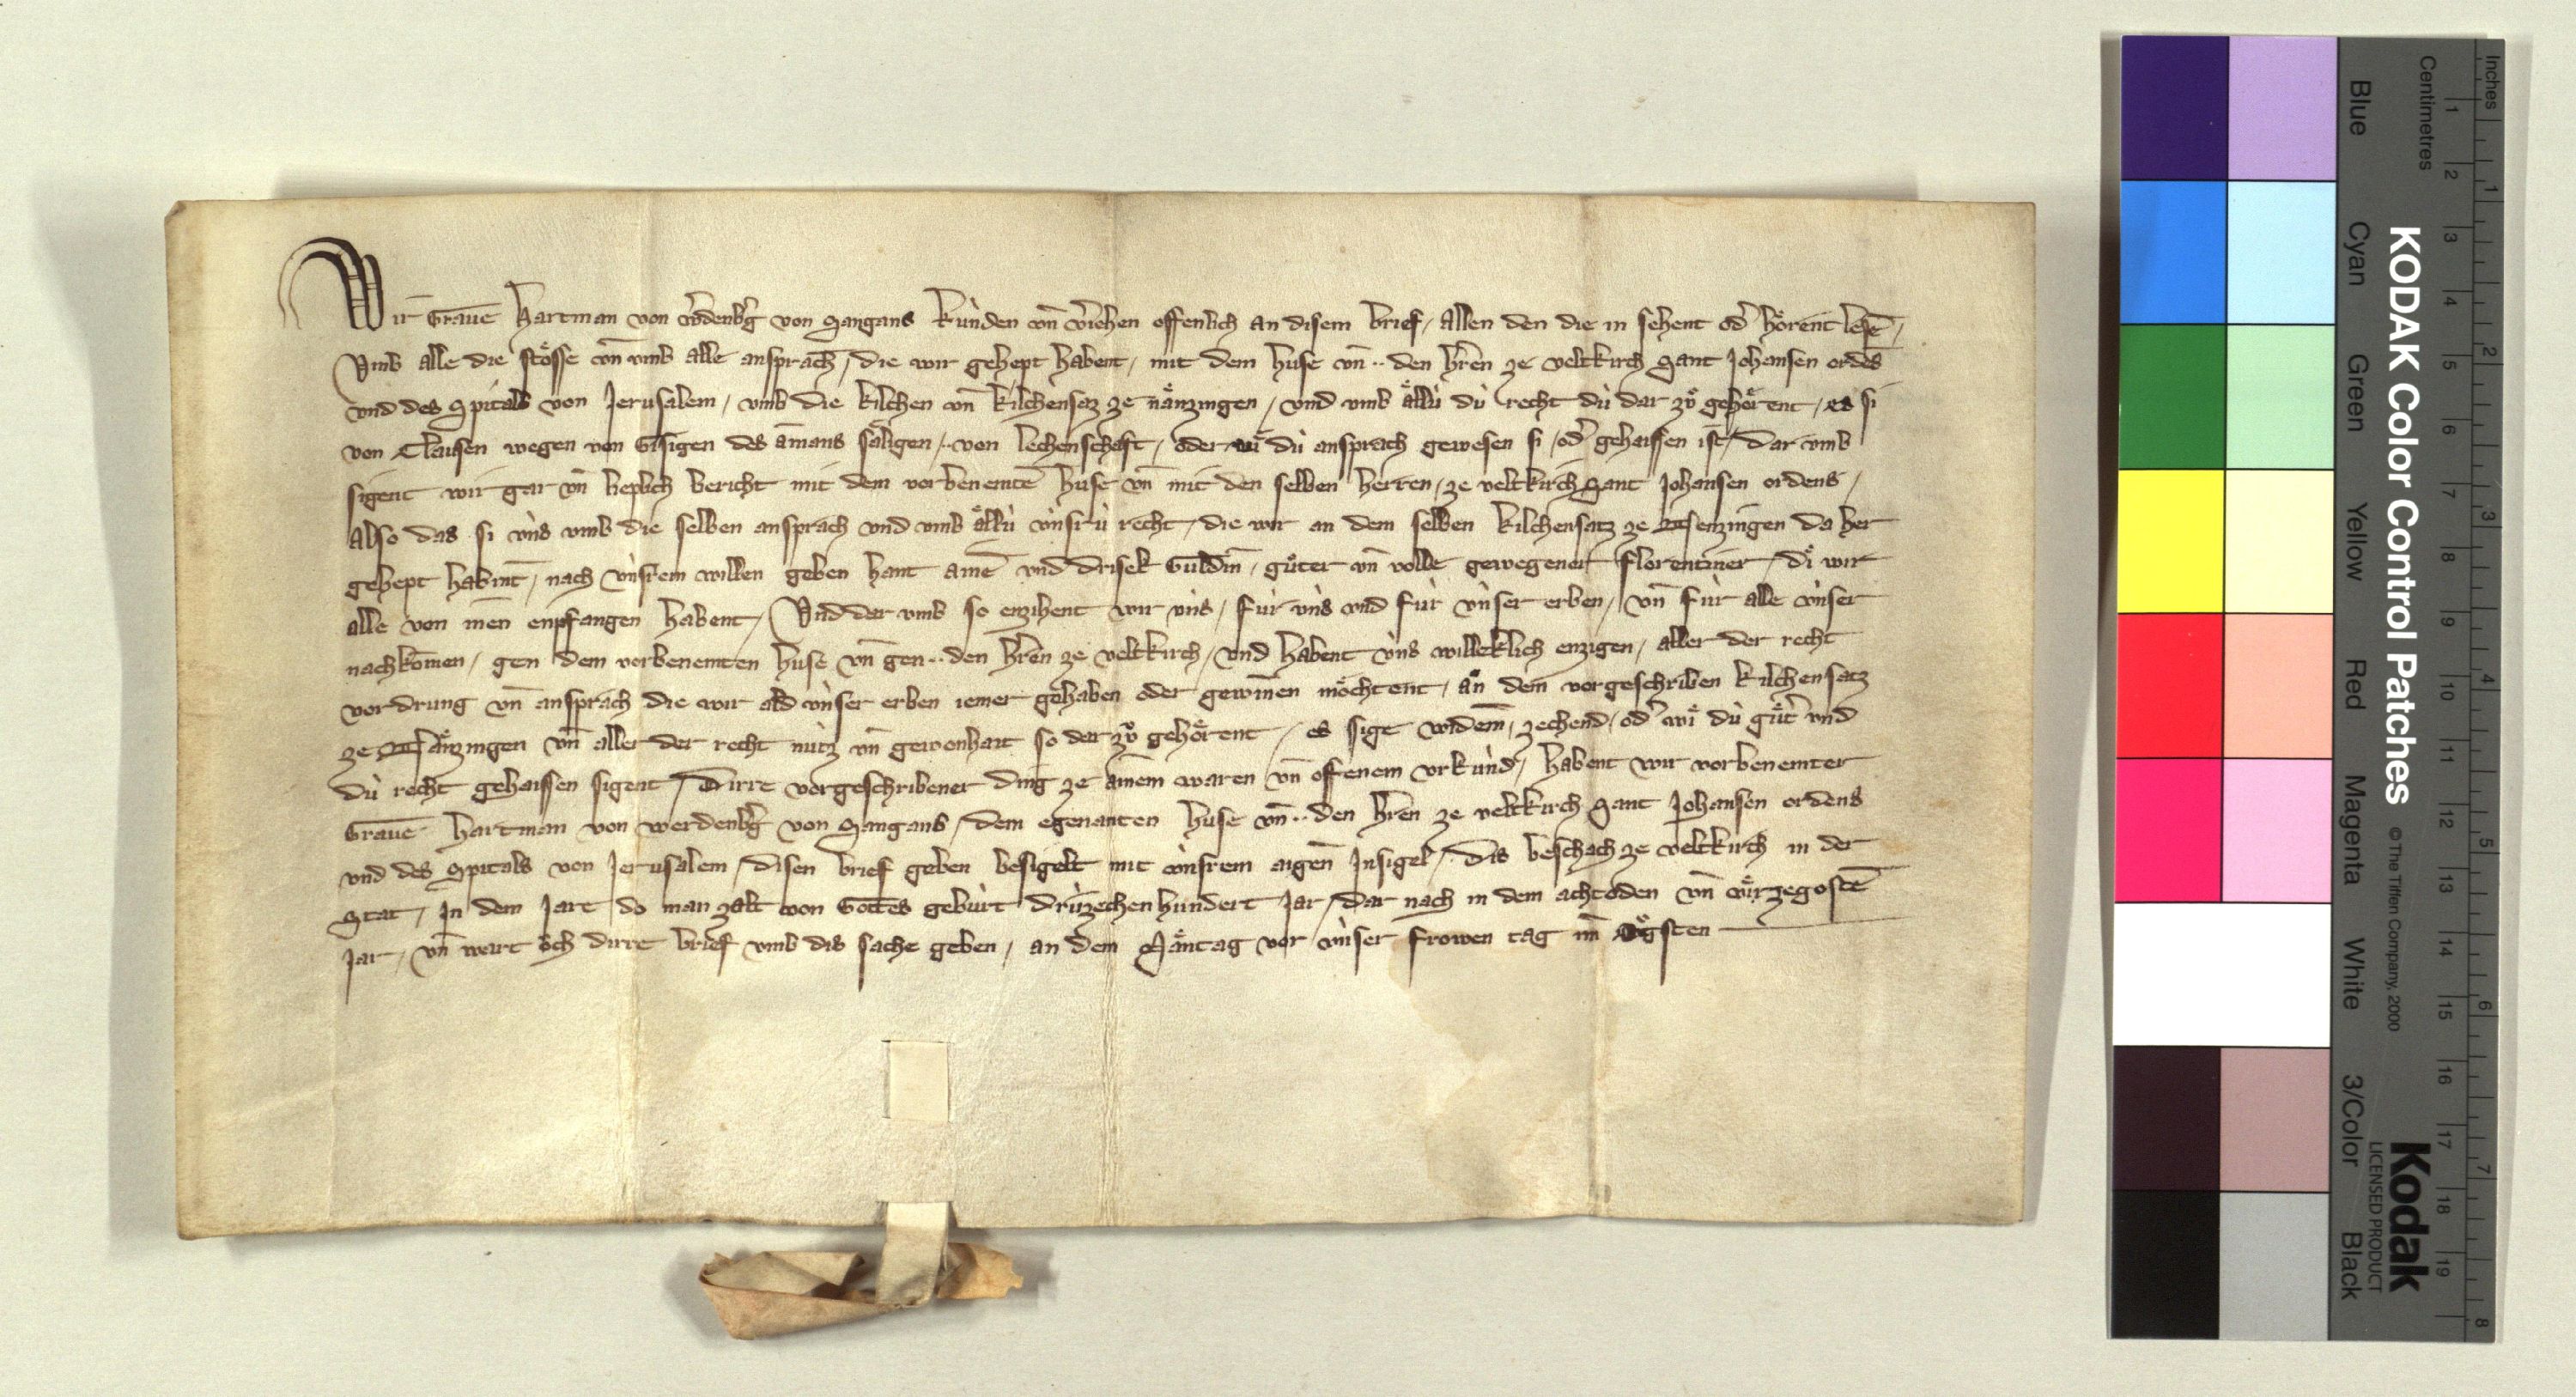 Wir Graue Hartman von W̄denb͛g von Sangans kúnden vn̄ v͛iehen offenlich an disem brief / allen den die in sehent od͛ hoͤrent lesē /
Vmb alle die stoͤsse vn̄ vmb alle ansprach / die wir gehept habent / mit dem huse vn̄ ·· den h͛ren ze veltkirch Sant Johansen ordēs
vnd des Spitals von Jerusalem / vmb die kilchen vn̄ kilchensaz ze naͤnzingen / vnd vmb aͤllú dú recht dú dar zuͦ gehoͤrent / es si
von Clausen wegen von Gisigen des āmans saͤligen / von lechenschaft / oder wie dú ansprach gewesen si / od͛ gehaissen ist / dar vmb
sigent wir gar vn̄ lieplich bericht mit dem vorbenemtē huse vn̄ mit den selben herren / ze veltkirch Sant Johansen ordens /
Also das si v́ns vmb die selben ansprach vnd vmb aͤllú v́nsrú recht / die wir an dem selben kilchensatz ze Nenzingen da her
gehept habint / nach v́nsrem willen geben hant ainē vnd drisek Guldin̄ / guͦter vn̄ volle gewegener florentiner / di wir
alle von inen enpfangen habent / Vnd dar vmb so enzihent wir v́ns / fúr v́ns vnd fúr v́nser erben / vn̄ fúr alle v́nser
nachkomen / gen dem vorbenemten huse vn̄ gen ·· den h͛ren ze veltkirch / vnd habent v́ns willeklich enzigen / aller der recht
vordrung vn̄ ansprach die wir ald v́nser erben iemer gehaben oder gewinnen moͤchtent / an dem vorgeschriben kilchensatz
ze Naͤnzingen vn̄ aller der recht nútz vn̄ gewonhait so dar zuͦ gehoͤrent / es sige widem̄ / zechend / od͛ wi dú guͤt͛ vnd
dú recht gehaissen sigent / Dirre vorgeschribener ding ze ainem waren vn̄ offenem vrkúnd / habent wir vorbenemter
Graue Hartman von werdenb͛g von Sangans / dem egenanten huse vn̄ ·· den h͛ren ze veltkirch Sant Johansen ordens
vnd des Spitals von Jerusalem / disen brief geben besigelt mit v́nsrem aigen Insigel / Dis beschach ze veltkirch in der
Stat / In dem Jare do man zalt von Gottes gebúrt drúzechenhundert Jar / dar nach in dem achtoden vn̄ vierzegostē
Jar / vn̄ wart och dirre brief vmb dis sache geben / an dem Maͤntag vor v́nser frowen tag im Oͤgsten
Inches
Centimetres
KODAK Color Control Patches
©The Tiffen Company, 2000
Kodak
LICENSED PRODUCT
Blue
Cyan
Green
Yellow
Red
Magenta
White
3/Color
Black
1 2 3 4 5 6 7 8 9 10 11 12 13 14 15 16 17 18 19
1 2 3 4 5 6 7 8